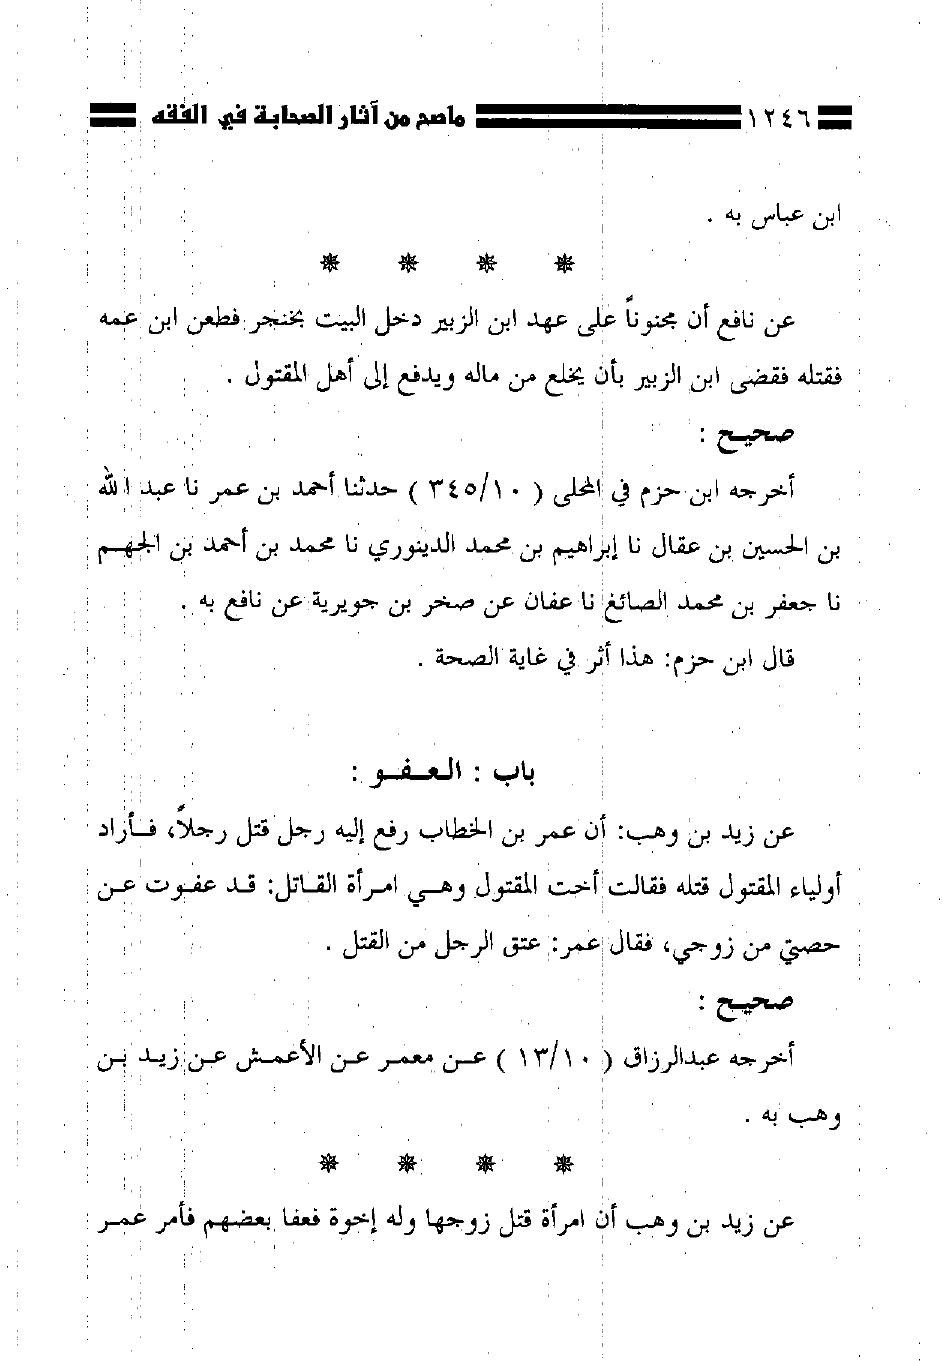 ١٢٤٦ ماصح من آثار الصحابة في الفقه
ابن عباس به .
عن نافع أن مجنوناً على عهد ابن الزبير دخل البيت بخنجر فطعن ابن عمه
فقتله فقضى ابن الزبير بأن يخلع من ماله ويدفع إلى أهل المقتول .
صحيح :
أخرجه ابن حزم في المحلى ( ٣٤٥/١٠ ) حدثنا أحمد بن عمر نا عبد الله
بن الحسين بن عقال نا إبراهيم بن محمد الدينوري نا محمد بن أحمد بن الجهم
نا جعفر بن محمد الصائغ نا عفان عن صخر بن جويرية عن نافع به .
قال ابن حزم: هذا أثر في غاية الصحة .
باب : العفو :
عن زيد بن وهب: أن عمر بن الخطاب رفع إليه رجل قتل رجلاً، فأراد
أولياء المقتول قتله فقالت أخت المقتول وهي امرأة القاتل: قد عفوت عن
حصتي من زوجي، فقال عمر: عتق الرجل من القتل .
صحيح :
أخرجه عبدالرزاق ( ١٣/١٠ ) عن معمر عن الأعمش عن زيد بن
وهب به .
عن زيد بن وهب أن امرأة قتل زوجها وله إخوة فعفا بعضهم فأمر عمر